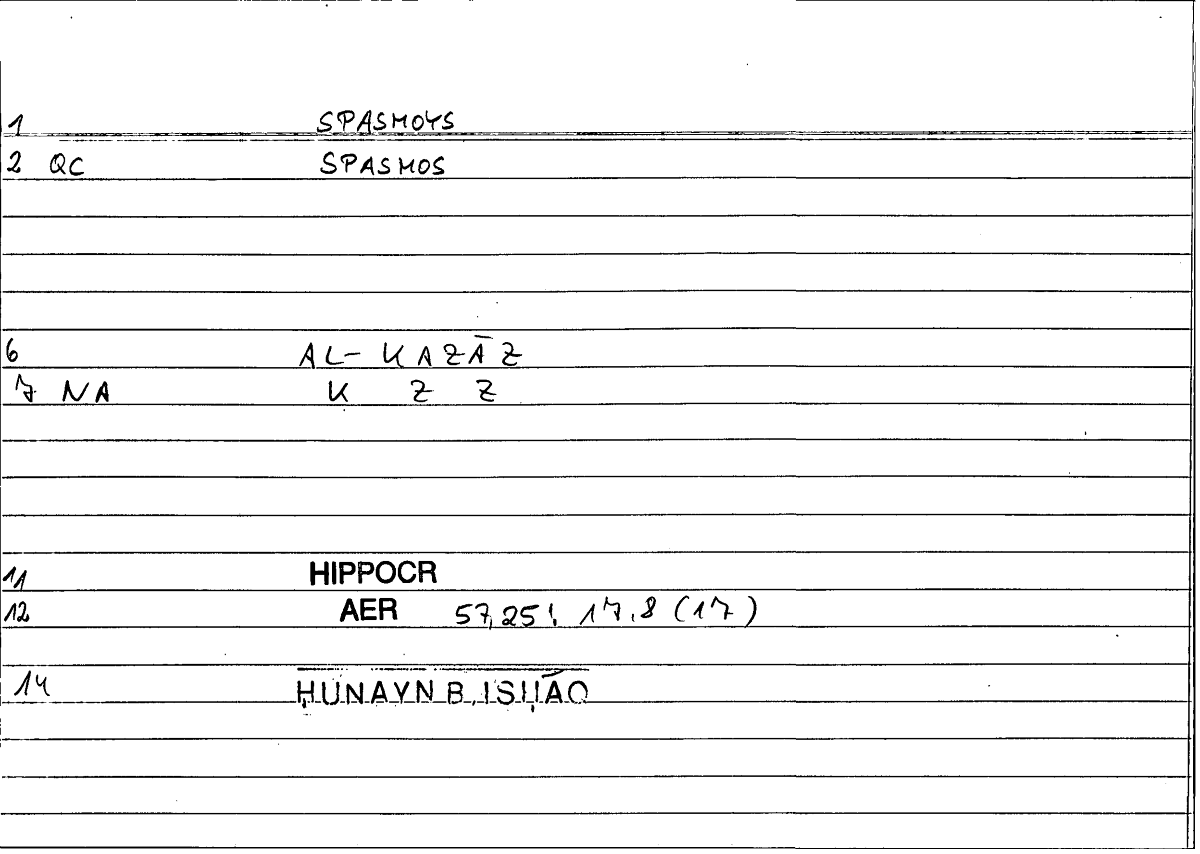 1 SPASMOYS
2 QC SPASMOS
6 AL- KAZĀZ
7 NA K Z Z
11 HIPPOCR
12 AER 57,25! 17.8 (17)
14 ḤUNAYN B. ISḤĀQ